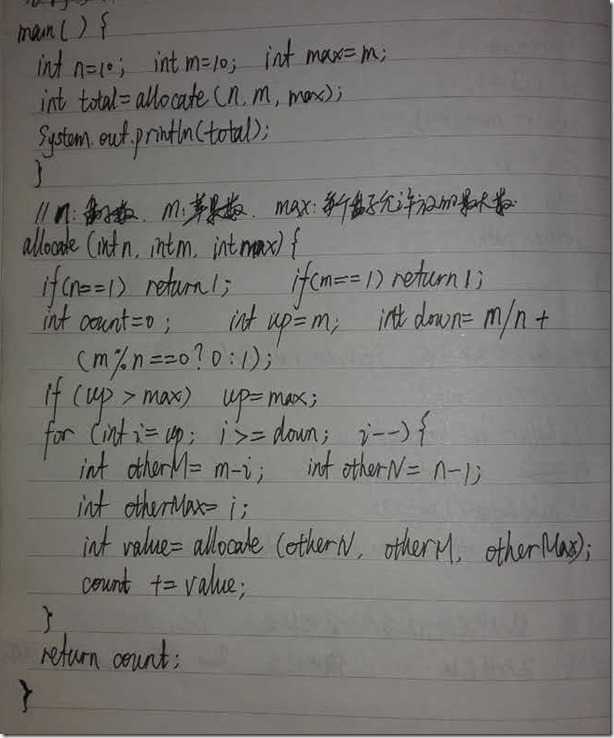 main() {
int n=10; int m=10; int max=m;
int total=allocate(n, m, max);
System.out.println(total);
}
// n:盘子数. m:苹果数. max:每个盘子允许放的最大数.
allocate (int n, int m, int max) {
if(n==1) return 1; if(m==1) return 1;
int count=0; int up=m; int down= m/n +
(m%n==0?0:1);
if (up > max) up=max;
for (int i=up; i>=down; i--) {
int otherM= m-i; int otherN= n-1;
int otherMax= i;
int value= allocate (otherN, otherM, otherMax);
count += value;
}
return count;
}